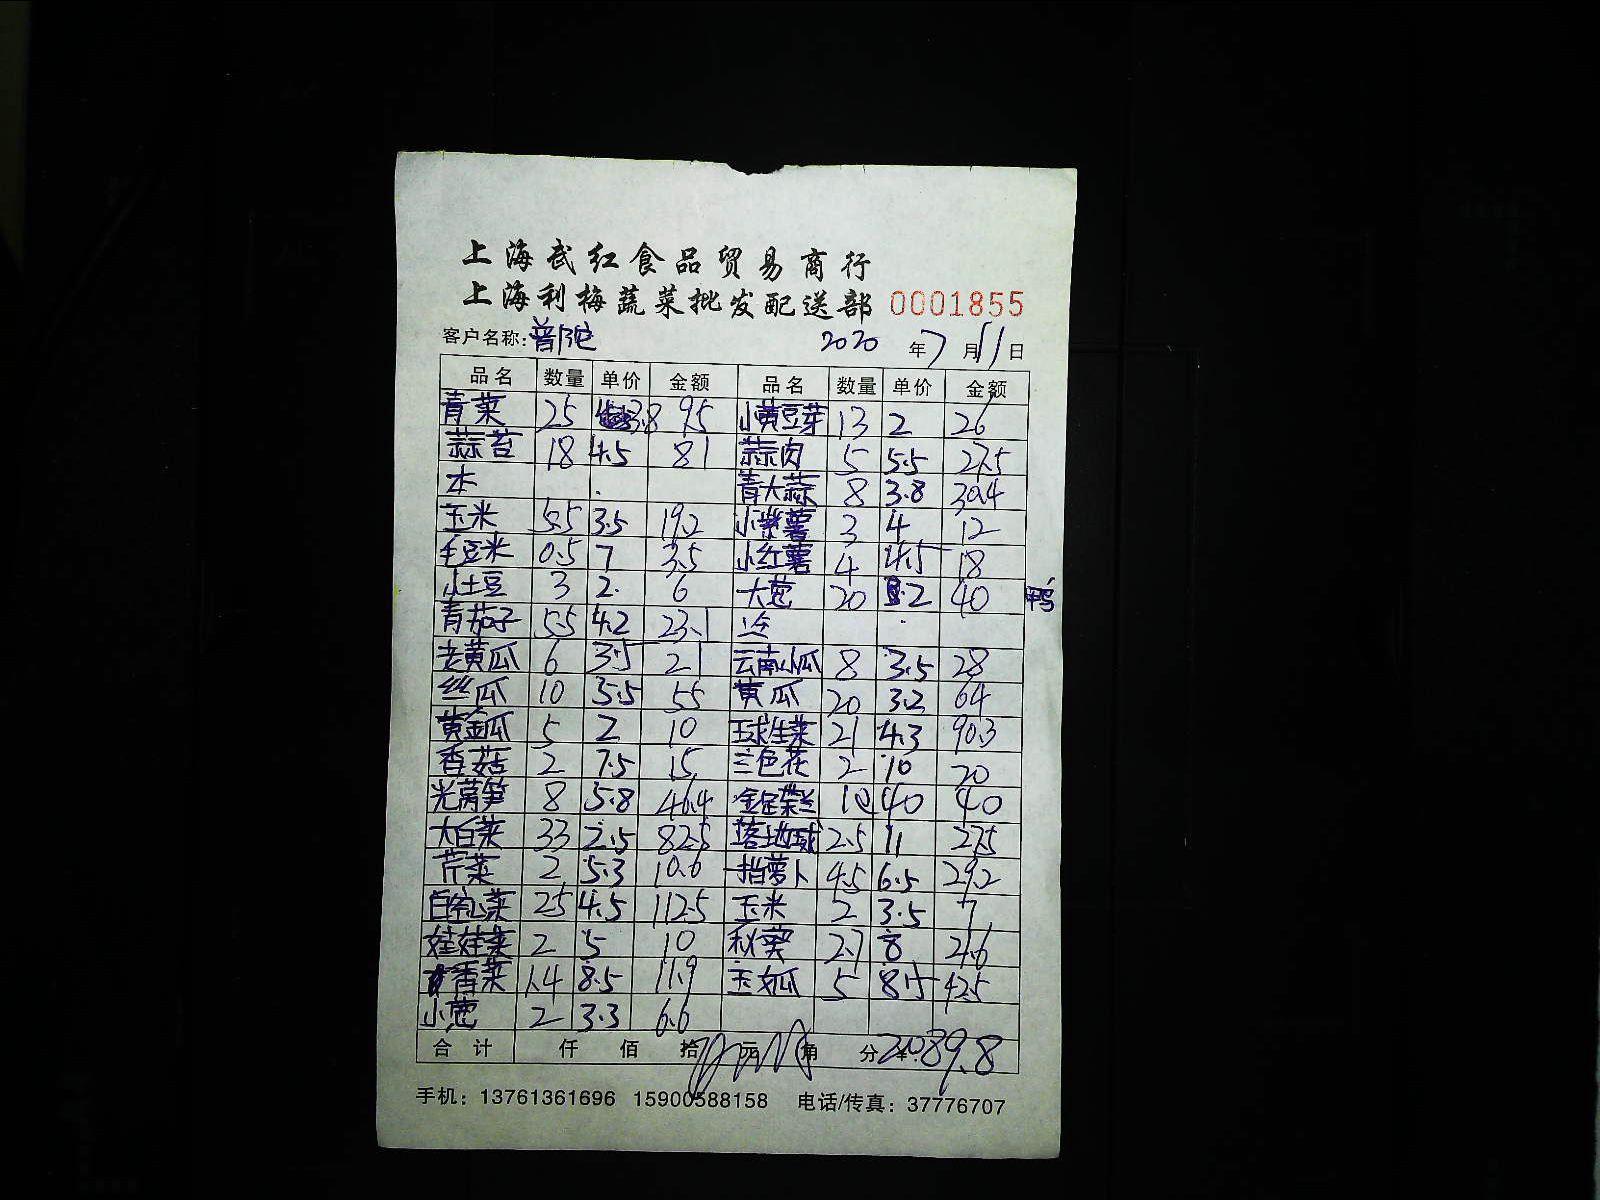 上海武红食品贸易商行
上海利梅蔬菜批发配送部 0001855
客户名称:普陀 2020 年 7 月 11 日
品名 数量 单价 金额 品名 数量 单价 金额
青菜 25 3.8 95 小黄豆芽 13 2 26
蒜苔 18 4.5 81 蒜肉 5 5.5 27.5
本 青大蒜 8 3.8 30.4
玉米 5.5 3.5 19.2 小紫薯 3 4 12
毛豆米 0.5 7 3.5 小红薯 4 4.5 18
小土豆 3 2. 6 大葱 20 2 40 鸭
青茄子 5.5 4.2 23.1
老黄瓜 6 3.5 21 云南小瓜 8 3.5 28
丝瓜 10 5.5 55 黄瓜 20 3.2 64
黄金瓜 5 2 10 球生菜 21 4.3 90.3
香菇 2 7.5 15 三色花 2 10 20
光莴笋 8 5.8 46.4 40 40
大白菜 33 2.5 82.5 落地球 2.5 11 27.5
芹菜 2 5.3 10.6 指萝卜 4.5 6.5 29.2
白空心菜 25 4.5 112.5 玉米 2 3.5 7
娃娃菜 2 5 10 秋葵 2.7 8 21.6
香菜 1.4 8.5 11.9 玉女瓜 5 8.5 42.5
小葱 2 3.3 6.6
合计 仟 佰 拾 元 角 分 ¥: 2089.8
手机：13761361696 15900588158 电话/传真：37776707